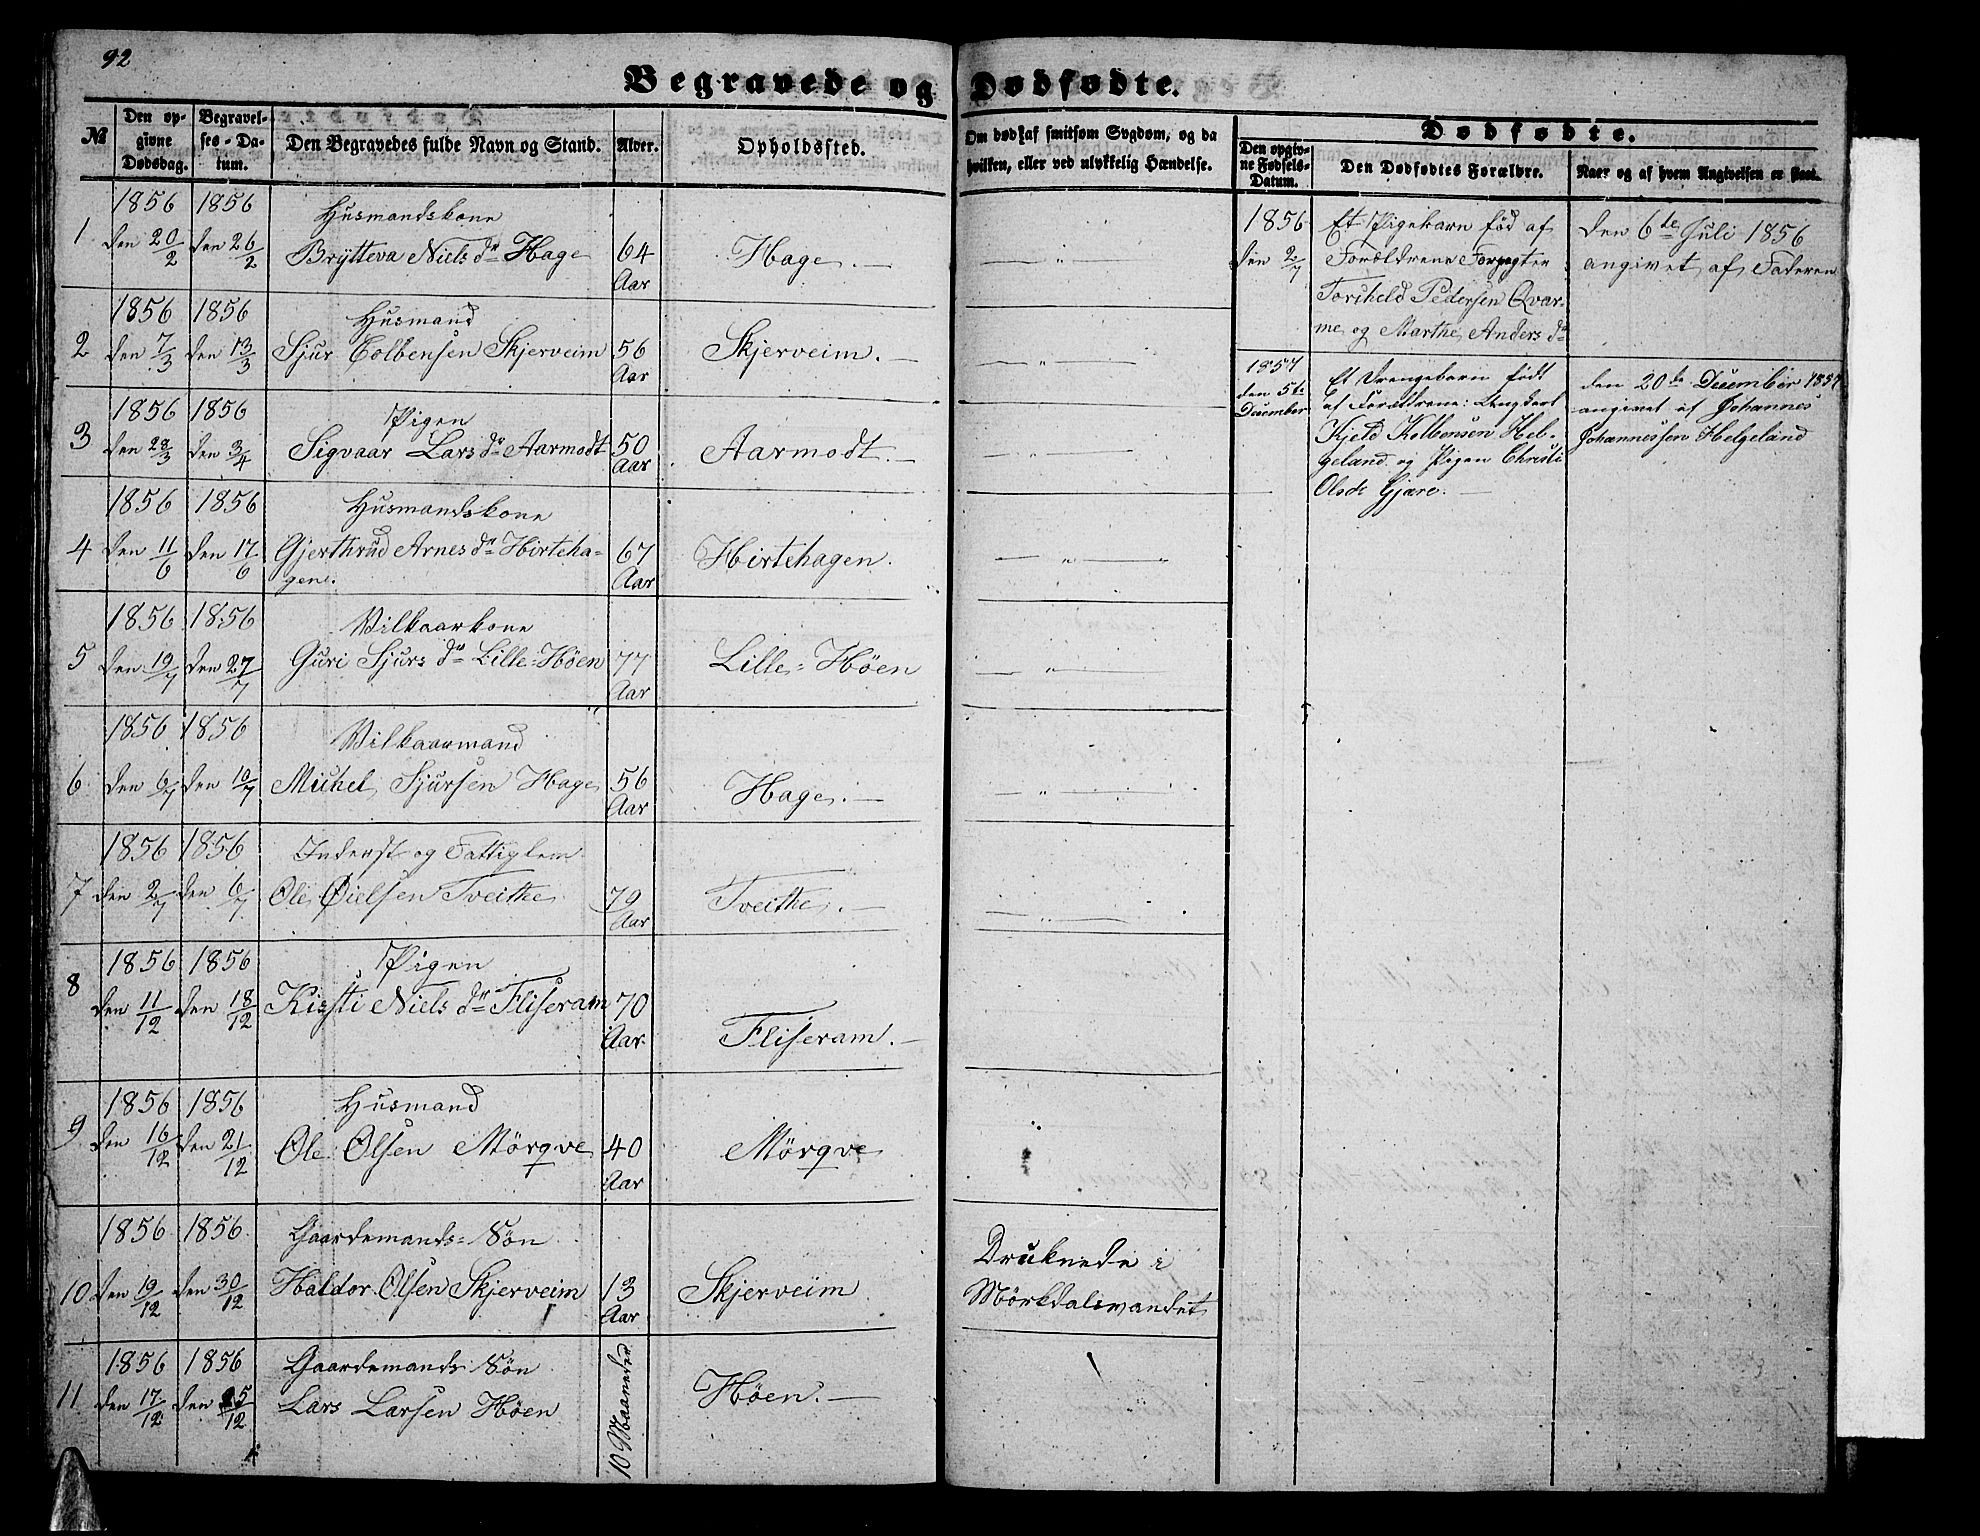 92
Begravede og Dødfødte.
No
Den opgivne Dødsdag.
Begravelses-Datum.
Den Begravedes fulde Navn og Stand.
Alder.
Opholdssted.
Om død af smitsom Sygdom, og da hvilken, eller ved ulykkelig Hændelse.
Dødfødte.
Den opgivne Fødsels-Datum.
Den Dødfødtes Forældre.
Naar og af hvem Angivelsen er skeet.
1856 1856 Husmandskone
1 den 20/2 den 26/2 Brytteva Niels dr Hage 64 Aar Hage. — — „ —
1856 1856 Husmand
2 den 7/3 den 13/3 Sjur Colbensen Skjerveim 56 Aar Skjerveim. — — „ —
1856 1856 Pigen
3 den 28/3 den 3/4 Sigvaar Lars dr Aarmodt 50 Aar Aarmodt. — — „ —
1856 1856 Husmandskone
4 den 11/6 den 17/6 Gjerthrud Arnes dr Hirteha-
gen. 67 Aar Hirtehagen. — „ —
1856 1856 Vilkaarkone
5 den 19/7 den 27/7 Guri Sjurs dr Lille-Höen 77 Aar Lille-Höen — „ —
1856 1856 Vilkaarmand
6 den 6/7 den 10/7 Michel Sjursen Hage 56 Aar Hage. — — „ —
1856 1856 Inderst og Fattiglem
7 den 2/7 den 6/7 Ole Øielsen Tveithe 79 Aar Tveithe. — — „ —
1856 1856 Pigen
8 den 11/12 den 18/12 Kisti Niels dr Fliseram 70 Aar Fliseram. —
1856 1856 Husmand
9 den 16/12 den 21/12 Ole Olsen Mörqve 40 Aar Mörqve „
1856 1856 Gaardemands-Sön
10 den 19/12 den 30/12 Haldor Olsen Skjerveim 13 Aar Skjerveim
Druknede i
Mörkdalsvandet
1856 1856 Gaardemands Sön
11 den 17/12 den 25/12 Lars Larsen Höen 10 Maaneder Höen. —
1856
den 2/7
Et Pigebarn fød af
Forældrene Forpagter
Torsheld Pedersen Qvar-
me og Marthe Anders dr
Den 6te Juli 1856
angivet af Faderen
1857
den 5te
December
Et Drengebarn født
af Forældrene: Ungkarl
Kjeld Kolbensen Hel-
geland og Pigen Christi
Olsdr Gjære. —
den 20de December 1857
angivet af Johannes
Johannessen Helgeland